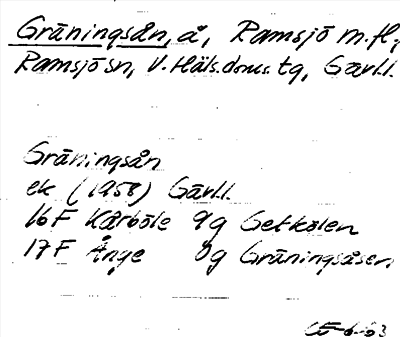 Gräningsån, å, Ramsjö m.fl.,
Ramsjö sn, V. Häls. doms. tg, Gävl.l.
Gräningsån
ek (1958) Gävl.l.
16F Kårböle 9g Getkölen
17F Ånge 0g Gräningsåsen